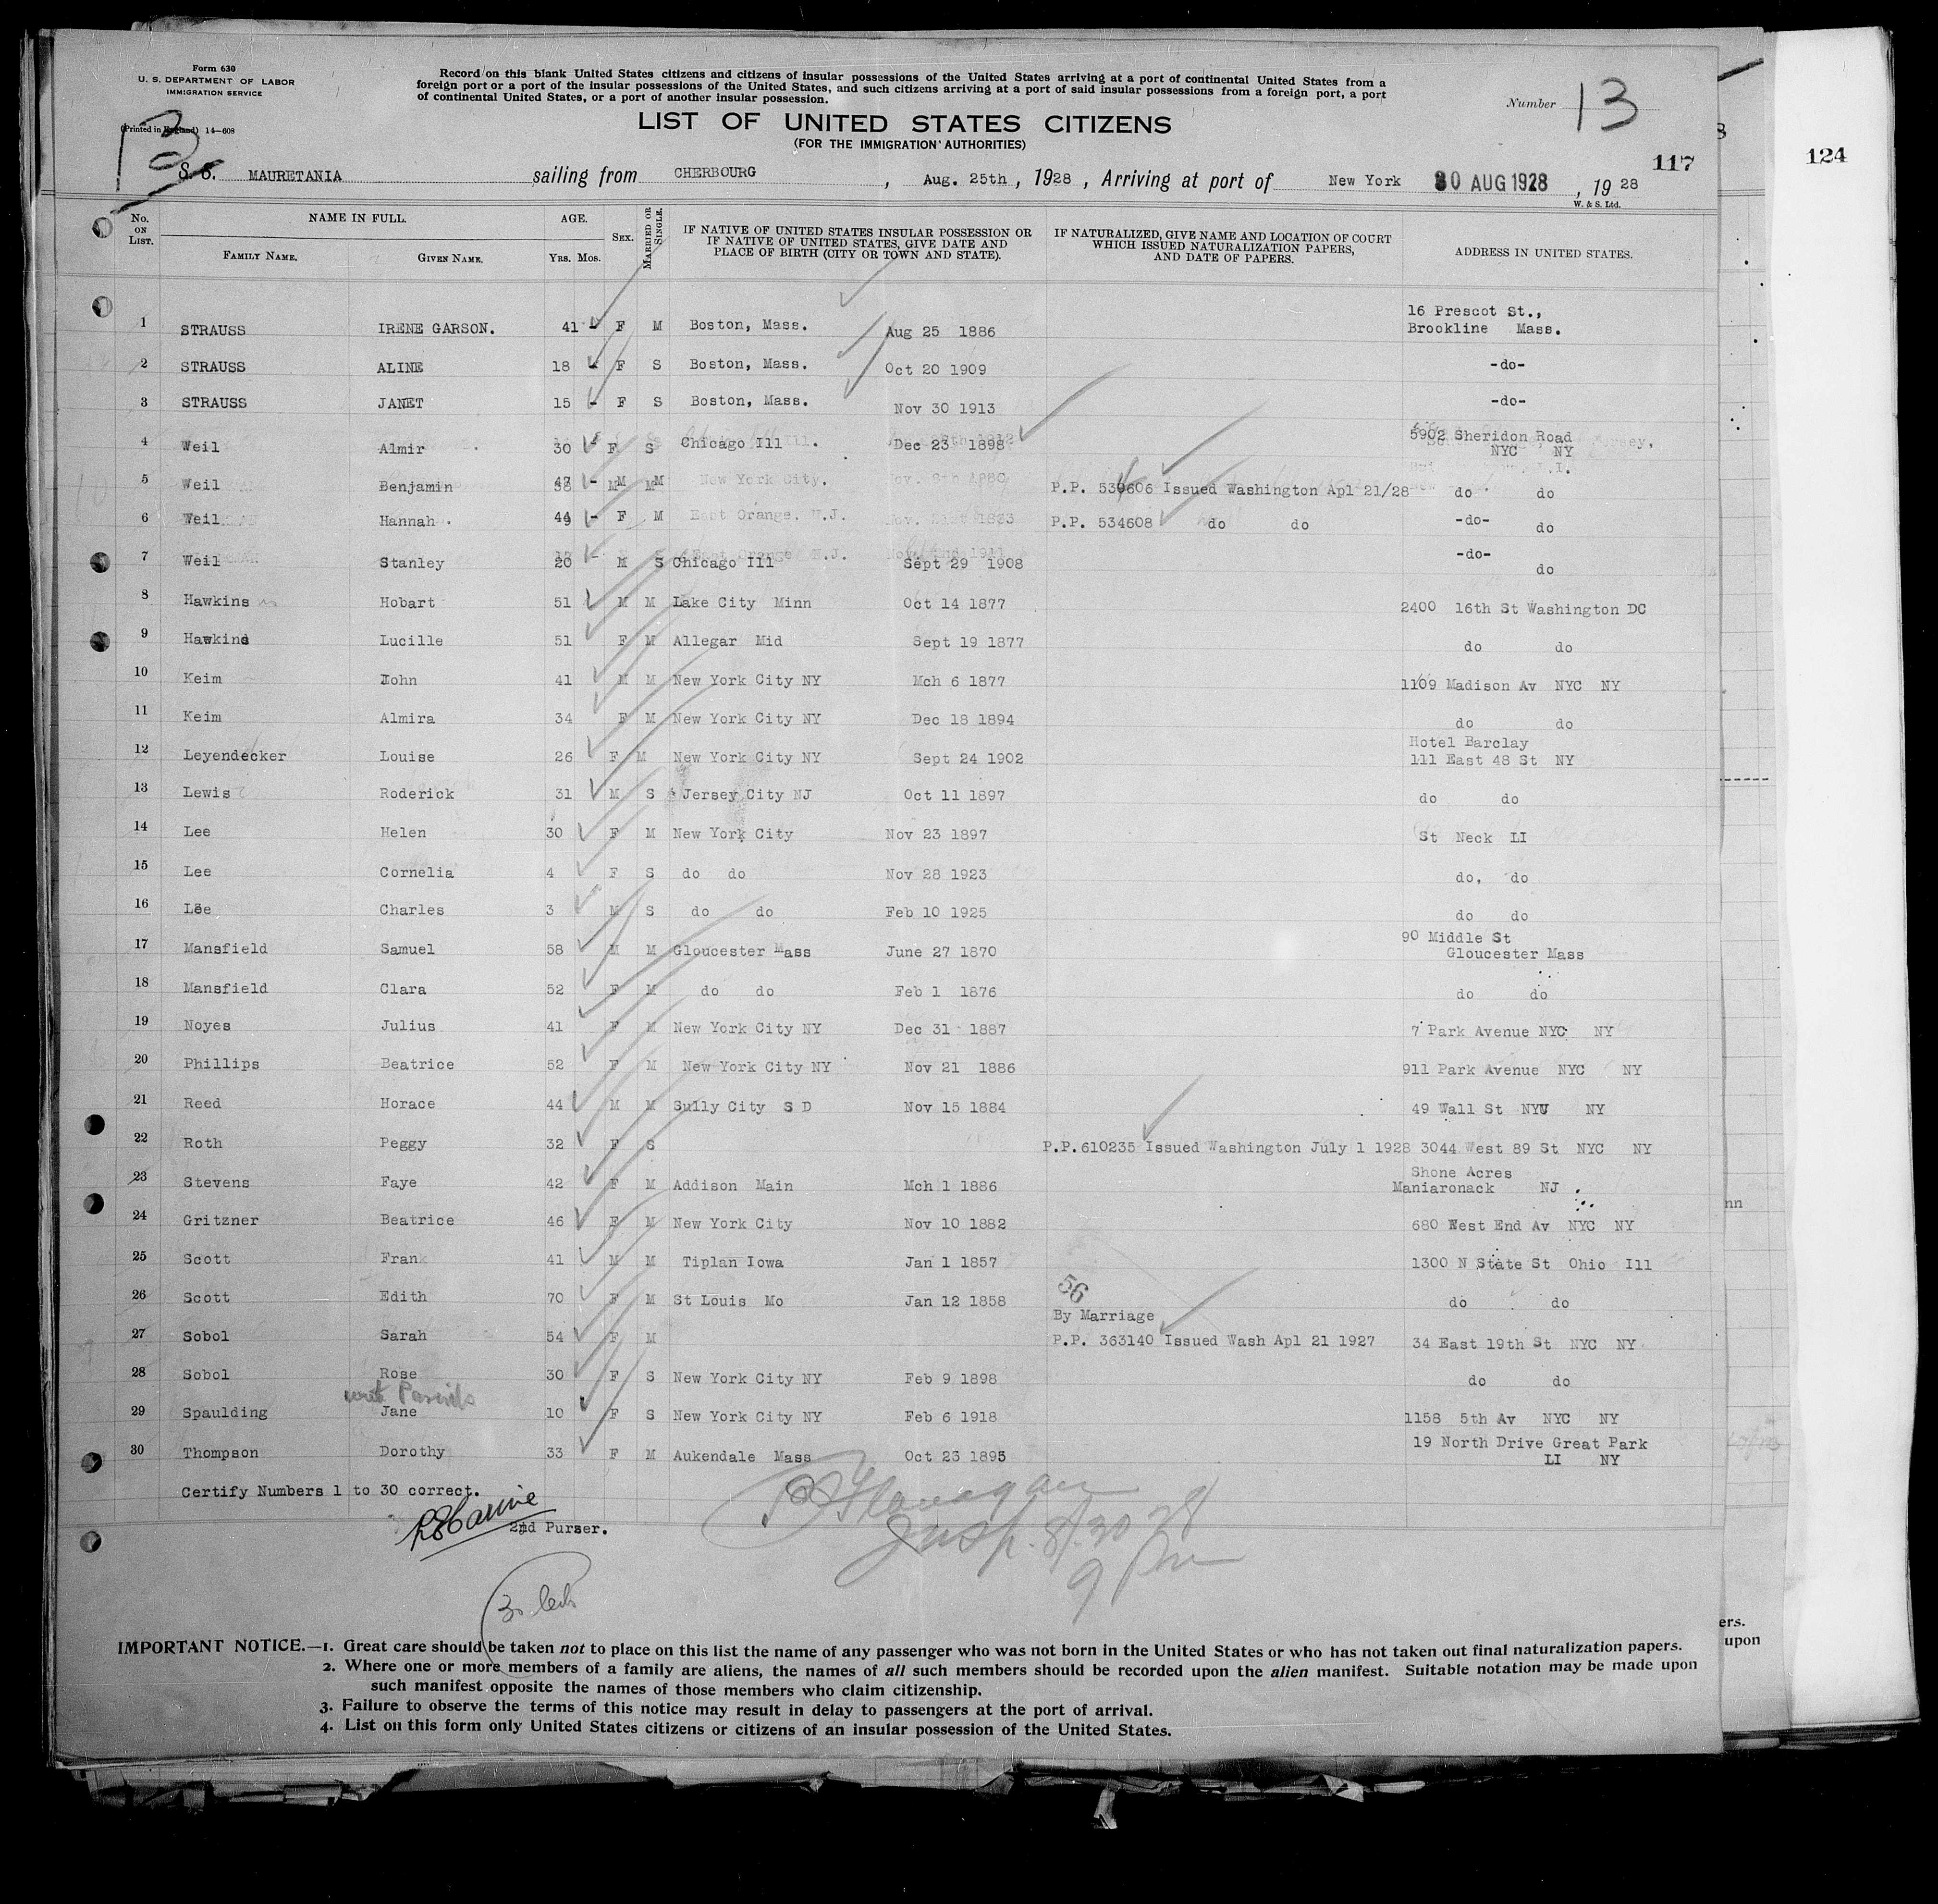 Form 630
U. S. DEPARTMENT OF LABOR
IMMIGRATION SERVICE
(Printed in England) 14—608
Record on this blank United States citizens and citizens of insular possessions of the United States arriving at a port of continental United States from a
foreign port or a port of the insular possessions of the United States, and such citizens arriving at a port of said insular possessions from a foreign port, a port
of continental United States, or a port of another insular possession.
Number 13
13
LIST OF UNITED STATES CITIZENS
(FOR THE IMMIGRATION AUTHORITIES)
117
124
S. S. MAURETANIA sailing from CHERBOURG, Aug. 25th, 1928, Arriving at port of New York 30 AUG 1928, 1928
W. & S. Ltd.
No. ON LIST. NAME IN FULL. FAMILY NAME. GIVEN NAME. AGE. YRS. MOS. SEX. MARRIED OR SINGLE. IF NATIVE OF UNITED STATES INSULAR POSSESSION OR IF NATIVE OF UNITED STATES, GIVE DATE AND PLACE OF BIRTH (CITY OR TOWN AND STATE). IF NATURALIZED, GIVE NAME AND LOCATION OF COURT WHICH ISSUED NATURALIZATION PAPERS, AND DATE OF PAPERS. ADDRESS IN UNITED STATES.
1 STRAUSS IRENE GARSON. 41 - F M Boston, Mass. Aug 25 1886 16 Prescot St., Brookline Mass.
2 STRAUSS ALINE 18 - F S Boston, Mass. Oct 20 1909 -do-
3 STRAUSS JANET 15 - F S Boston, Mass. Nov 30 1913 -do-
4 Weil Almir 30 F S Chicago Ill . Dec 23 1898 5902 Sheridon Road NYC NY
5 Weil Benjamin - M M New York City. P.P. 530606 Issued Washington Apl 21/28 do do
6 Weil Hannah 44 - F M East Orange. N.J. P.P. 534608 do do -do- do
7 Weil Stanley 20 M S Chicago Ill Sept 29 1908 -do- do
8 Hawkins Hobart 51 M M Lake City Minn Oct 14 1877 2400 16th St Washington DC
9 Hawkins Lucille 51 F M Allegar Mid Sept 19 1877 do do
10 Keim John 41 M M New York City NY Mch 6 1877 1109 Madison Av NYC NY
11 Keim Almira 34 F M New York City NY Dec 18 1894 do do
12 Leyendecker Louise 26 F M New York City NY Sept 24 1902 Hotel Barclay 111 East 48 St NY
13 Lewis Roderick 31 M S Jersey City NJ Oct 11 1897 do do
14 Lee Helen 30 F M New York City Nov 23 1897 St Neck LI
15 Lee Cornelia 4 F S do do Nov 28 1923 do, do
16 Lee Charles 3 M S do do Feb 10 1925 do do
17 Mansfield Samuel 58 M M Gloucester Mass June 27 1870 90 Middle St Gloucester Mass
18 Mansfield Clara 52 F M do do Feb 1 1876 do do
19 Noyes Julius 41 F M New York City NY Dec 31 1887 7 Park Avenue NYC NY
20 Phillips Beatrice 52 F M New York City NY Nov 21 1886 911 Park Avenue NYC NY
21 Reed Horace 44 M M Sully City S D Nov 15 1884 49 Wall St NYU NY
22 Roth Peggy 32 F S P.P.610235 Issued Washington July 1 1928 3044 West 89 St NYC NY
23 Stevens Faye 42 F M Addison Main Mch 1 1886 Shone Acres Maniaronack NJ
24 Gritzner Beatrice 46 F M New York City Nov 10 1882 680 West End Av NYC NY
25 Scott Frank 41 M M Tiplan Iowa Jan 1 1857 1300 N State St Ohio Ill
26 Scott Edith 70 F M St Louis Mo Jan 12 1858 do do
56
By Marriage
27 Sobol Sarah 54 F M P.P. 363140 Issued Wash Apl 21 1927 34 East 19th St NYC NY
28 Sobol Rose 30 F S New York City NY Feb 9 1898 do do
29 Spaulding Jane 10 F S New York City NY Feb 6 1918 1158 5th Av NYC NY
30 Thompson Dorothy 33 F M Aukendale Mass Oct 23 1895 19 North Drive Great Park LI NY
Certify Numbers 1 to 30 correct.
2nd Purser.
Flanagan
Insp. 8/30 28
9 Pm
IMPORTANT NOTICE.—1. Great care should be taken not to place on this list the name of any passenger who was not born in the United States or who has not taken out final naturalization papers.
2. Where one or more members of a family are aliens, the names of all such members should be recorded upon the alien manifest. Suitable notation may be made upon
such manifest opposite the names of those members who claim citizenship.
3. Failure to observe the terms of this notice may result in delay to passengers at the port of arrival.
4. List on this form only United States citizens or citizens of an insular possession of the United States.
ers.
upon